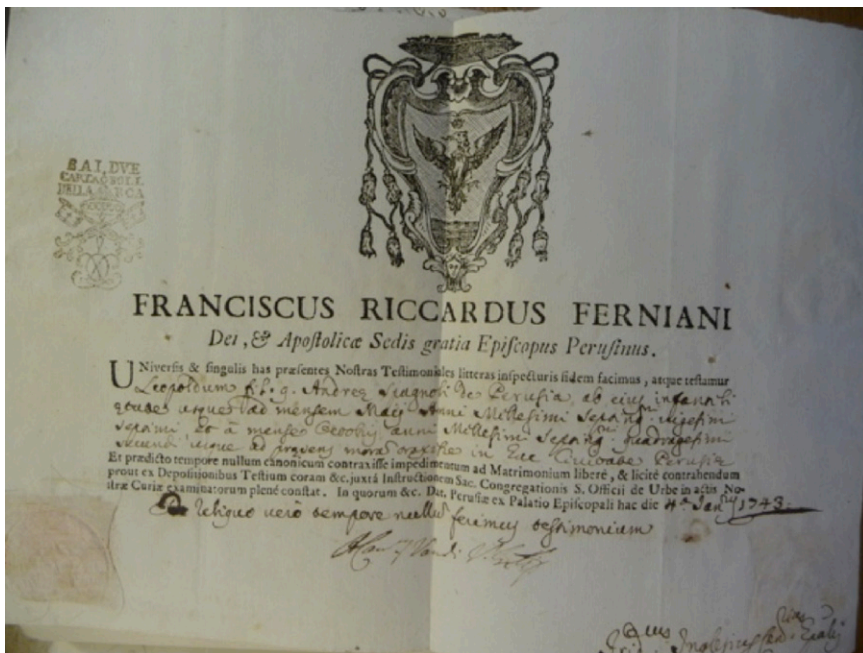 BAI, DVE
FRANCISCUS RICCARDUS FERNIANI
Dei, & Apostolicæ Sedis gratia Episcopus Perusinus.
UNiversis & singulis has præsentes Nostras Testimoniales litteras inspecturis fidem facimus, atque testamur
Leopoldum fil. q. Andreę de Perusia, ab eius infantili
ętate usque ad mensem Maij Anni Millesimi Septang. vigesimi
septimi et à mense Octobris anni Millesimi Septang. quadragesimi
secundi usque ad pręsens moram traxisse in hac Civitate Perusię
Et prædicto tempore nullum canonicum contraxisse impedimentum ad Matrimonium liberè, & licitè contrahendum
prout ex Depositionibus Testium coram &c. juxtà Instructionem Sac. Congregationis S. Officii de Urbe in actis No-
stræ Curiæ examinatorum plenè constat. In quorum &c. Dat. Perusiæ ex Palatio Episcopali hac die 4 Jan. 1743.
De reliquo verò tempore nullum ferimus testimonium